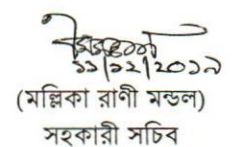 ১১/১২/২০১৯
(মল্লিকা রাণী মন্ডল)
সহকারী সচিব